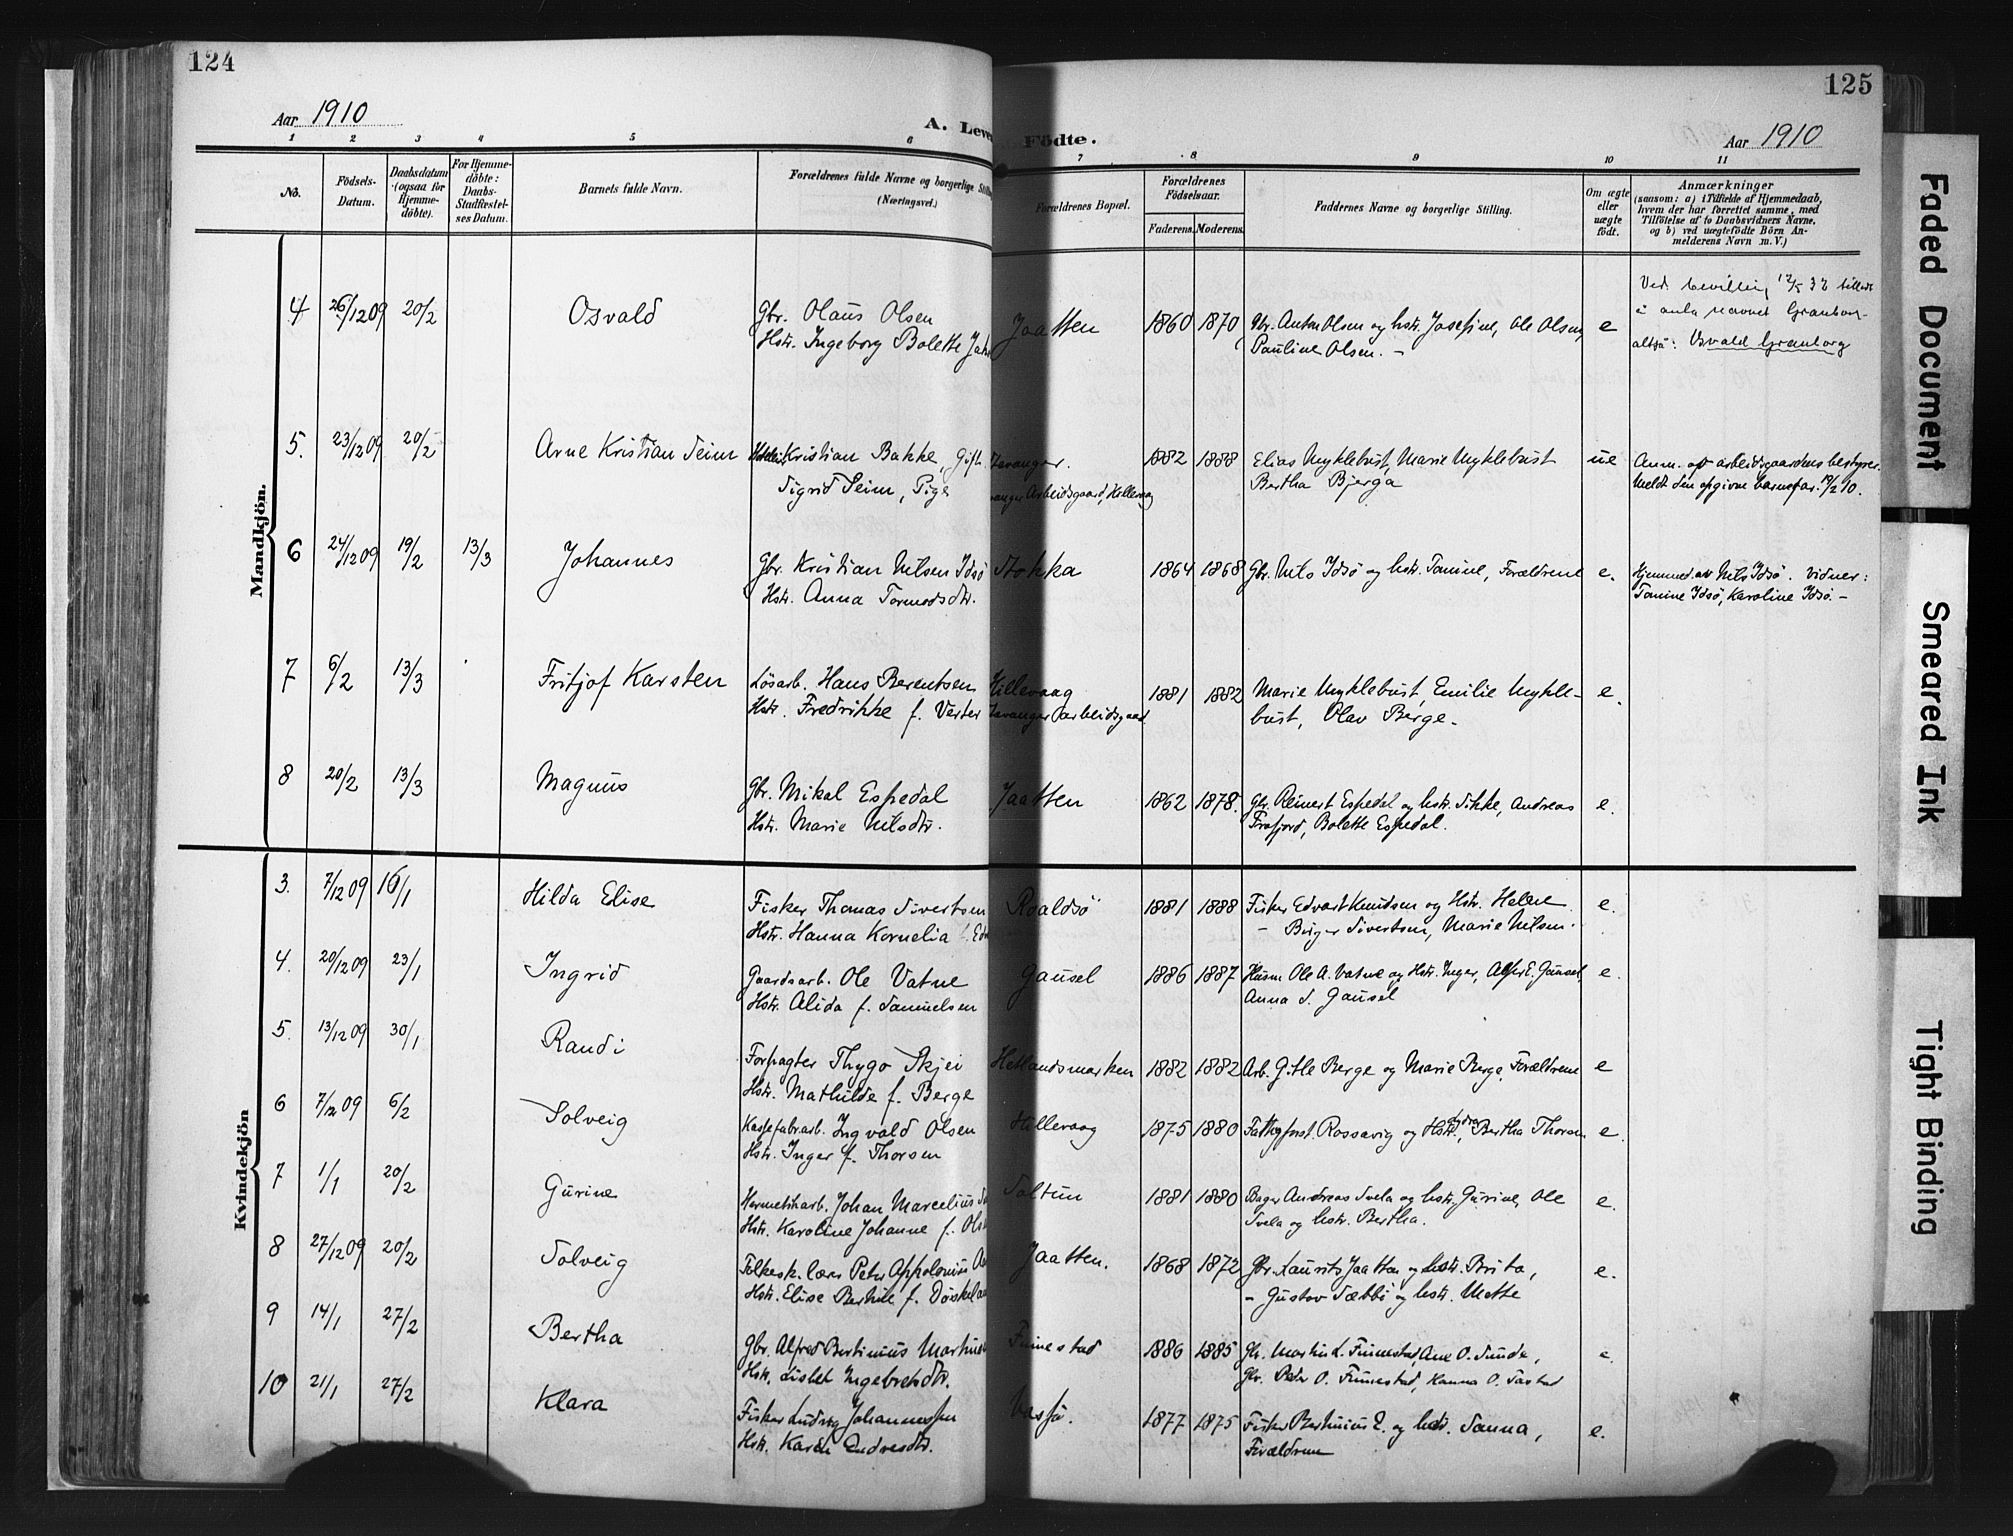 124
Aar 1910
A. Leve
1 2 3 4 5 6
No.
Födsels-Datum.
Daabsdatum (ogsaa for Hjemme-döbte).
For Hjemme-döbte: Daabs-Stadfæstel-ses Datum.
Barnets fulde Navn.
Forældrenes fulde Navne og borgerlige Stilli
(Næringsvei.)
Mandkjön.
4 26/12 09 20/2 Osvald Gbr. Olaus Olsen
Hstr. Ingeborg Bolette
5. 23/12 09 20/2 Arne Kristian Seim Kristian Bakke, Gift.
Sigrid Seim, Pige
6 24/12 09 19/2 13/3 Johannes Gbr. Kristian Nilsen Idsö
Hstr. Anna Tormodsdtr.
7 6/2 13/3 Fritjof Karsten Lösarb. Hans Berentsen
Hstr. Fredrikke f. Verter
8 20/2 13/3 Magnus Gbr. Mikal Espedal
Hstr. Marie Nilsdtr.
Kvindekjön
3. 7/12 09 16/1 Hilda Elise Fisker Thomas Sivertsen
Hstr. Hanna Kornelia f.
4. 20/12 09 23/1 Ingrid Gaardsarb. Ole Vatne
Hstr. Alida f. Samuelsen
5. 13/12 09 30/1 Randi Forpagter Thygo Skjei
Hstr. Mathilde f. Berge
6 7/12 09 6/2 Solveig Ingvald Olsen
Hstr. Inger f. Thorsen
7 1/1 20/2 Gurine Hermetikarb. Johan Marcelius
Hstr. Karoline Johanne f.
8 27/12 09 20/2 Solveig Folkesk. lærer Peter Appolonius
Hstr. Elise Berthine f.
9 14/1 27/2 Bertha Gbr. Alfred Bertinius
Hstr. Lisbet Ingebretsdtr.
10 21/1 27/2 Klara Fisker Ludvig Johannessen
Hstr. Karen Endresdtr.
125
Födte.
Aar 1910
7 8 9 10 11
Forældrenes Bopæl.
Forældrenes Födselsaar.
Faderens. Moderens.
Faddernes Navne og borgerlige Stilling.
Om ægte eller uægte födt.
Anmærkninger
(saasom: a) i Tilfælde af Hjemmedaab,
hvem der har forrettet samme, med
Tilföielse af to Daabsvidners Navne,
og b) ved uægtefödte Börn An-
melderens Navn m. V.)
Jaatten 1860 1870 Gbr. Anton Olsen og hstr. Josefine, Ole Olsen,
Pauline Olsen. - e
Ved bevilling 12/5 32
navnet
altså: Osvald Granborg
1882 1888 Elias Myklebust, Marie Myklebust
Bertha Bjerga ue
Arbeidsgaard, Hillevaag
Anm. af arbeidsgaardens bestyrer.
Meldt den opgivne barnefar. 19/2 10.
Stokka 1864 1868 Gbr. Nils Idsö og hstr. Tomine, Forældrene e.
Hjemmed. av Nils Idsö. Vidner:
Tomine Idsö, Karoline Idsö. -
Hillevaag 1881 1882 Marie Myklebust, Emilie Mykle-
bust, Olav Berge. - e.
Jaatten 1862 1878. Gbr. Reinert Espedal og hstr. Sikke, Andreas
Frafjord, Bolette Espedal. e.
Roaldsö 1881 1888 Fisker Edvart Knudsen og Hstr. Helene
- Birger Sivertsen, Marie Nilsen. e.
Gausel 1886 1887 Husm. Ole A. Vatne og Hstr. Inger, Alfr. E. Gausel,
Anna S. Gausel e.
Hetlandsmarken 1882 1882 Arb. Gitle Berge og Marie Berge, Forældrene e
Hillevaag 1875 1880 Rossavig og Hstr., Bertha Thorsen e.
Soltun 1881 1880 Bager Andreas Svela og hstr. Gurine, Ole
Svela og hstr. Bertha. e.
Jaatten. 1868 1872 Gbr. Laurits Jaatten og hstr. Brita,
- Gustav Sæbbö og hstr. Mette e.
Finnestad 1886 1885 Gbr. Martin L. Finnestad, Ane O. Sunde,
Gbr. Peder O. Finnestad, Hanna O. e.
1877 1875 Fisker og hstr. Sanna,
Forældrene e.
Faded Document
Smeared Ink
Tight Binding